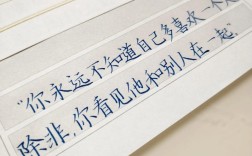 “你永远不知道自己多喜欢一个
除非，你看见他和别人在一起